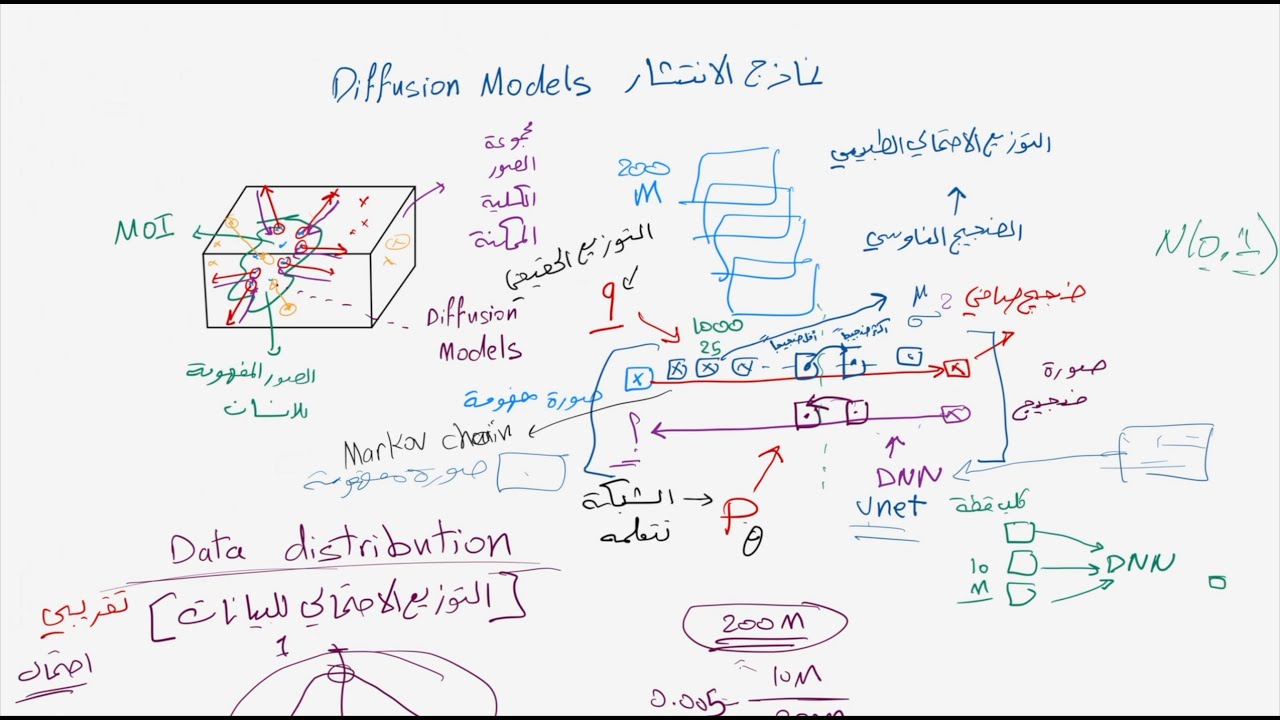 Diffusion Models نماذج الانتشار
مجموعة
الصور
الكلية
الممكنة
200
M
التوزيع الاحتمالي الطبيعي
MOI
التوزيع الحقيقي
الضجيج الغاوسي
N(0, 1)
q
Diffusion
Models
1000
25
أقل ضجيجاً
أكثر ضجيجاً
M
0
2
ضجيج صافي
الصور المفهومة
للانسان
صورة مفهومة
صورة
ضجيج
؟
Markov chain
صورة مفهومة
الشبكة
تتعلمه
P
θ
DNN
Unet
كلب قطة
10
M
DNN
Data distribution
[التوزيع الاحتمالي للبيانات]
تقريبي
احتمال
1
200M
10M
0.005